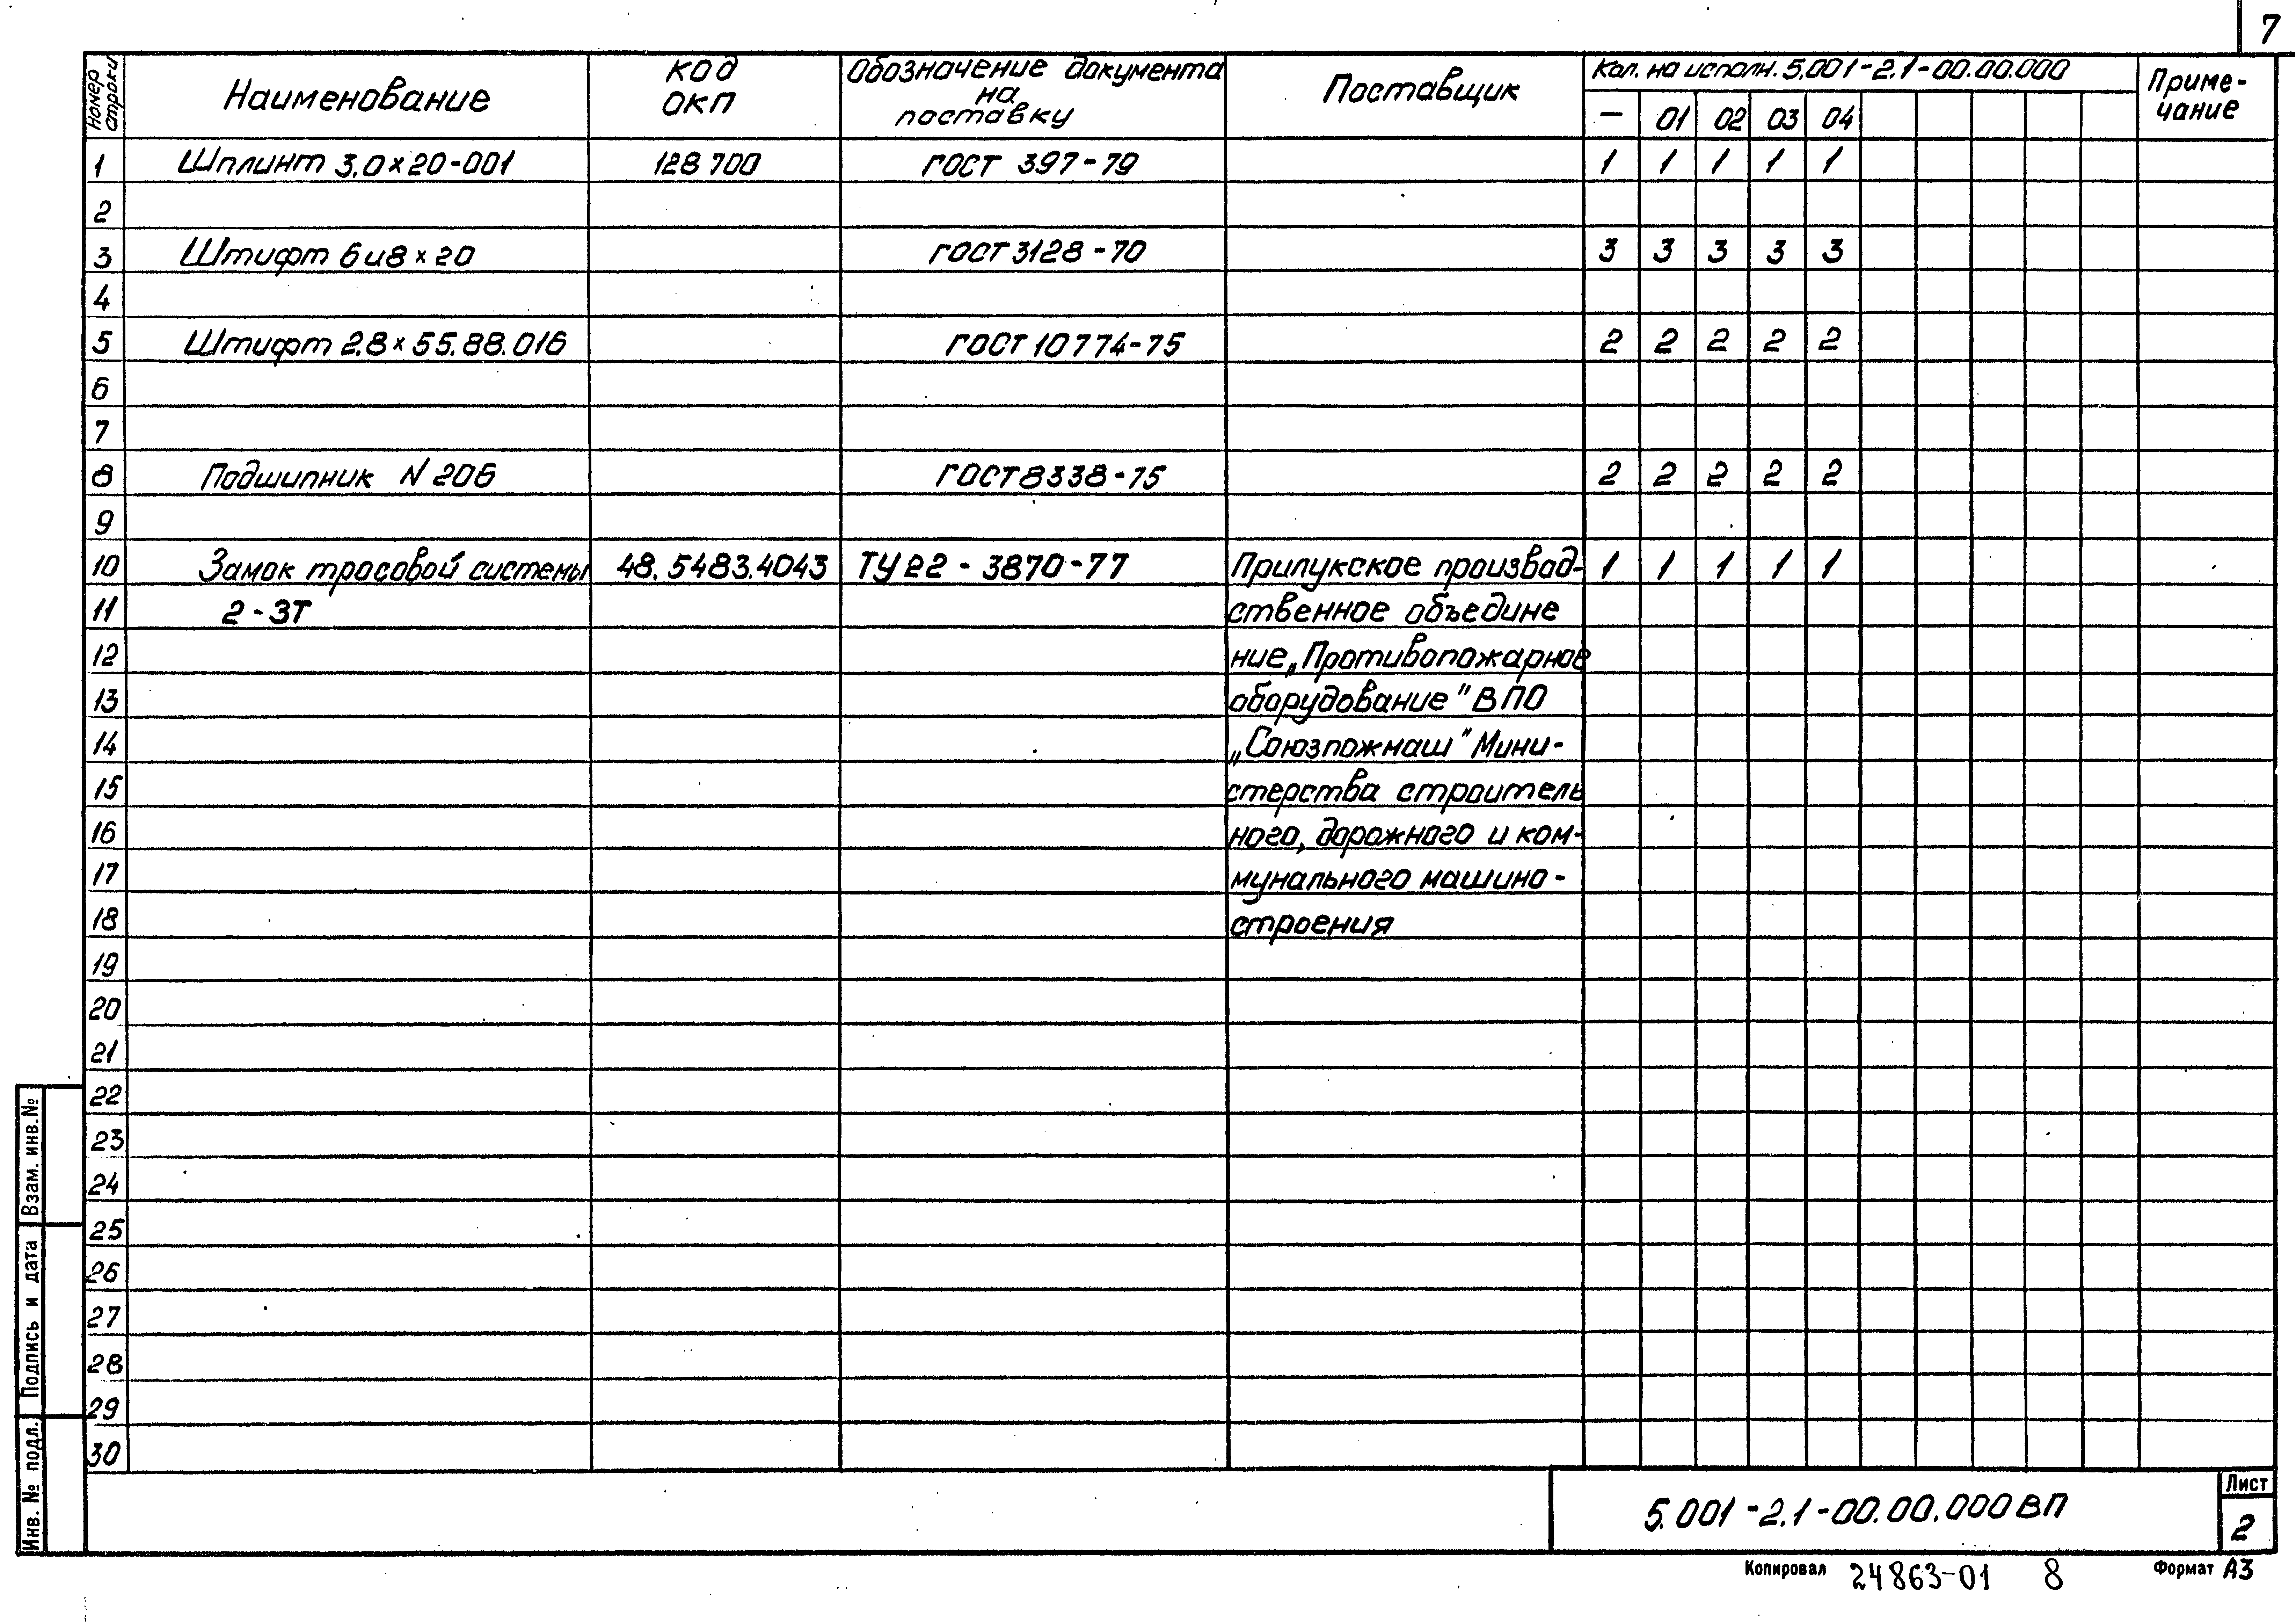 7
Номер строки
Наименование
Код ОКП
Обозначение документа на поставку
Поставщик
Кол. на исполн. 5.001-2.1-00.00.000
Приме-чание
— 01 02 03 04
1 Шплинт 3,0×20-001 128 700 ГОСТ 397-79 1 1 1 1 1
2
3 Штифт 6и8×20 ГОСТ 3128-70 3 3 3 3 3
4
5 Штифт 2.8×55.88.016 ГОСТ 10774-75 2 2 2 2 2
6
7
8 Подшипник N 206 ГОСТ 8338-75 2 2 2 2 2
9
10 Замок тросовой системы 48.5483.4043 ТУ22-3870-77 Прилукское производ- 1 1 1 1 1
11 2-3Т ственное объедине
12 ние „Противопожарное
13 оборудование" ВПО
14 „Союзпожмаш" Мини-
15 стерства строитель
16 ного, дорожного и ком-
17 мунального машино-
18 строения
19
20
21
22
23
24
25
26
27
28
29
30
Взам. инв.№
Подпись и дата
Инв. № подл.
5.001-2.1-00.00.000ВП
Лист
2
Копировал 24863-01 8 Формат А3